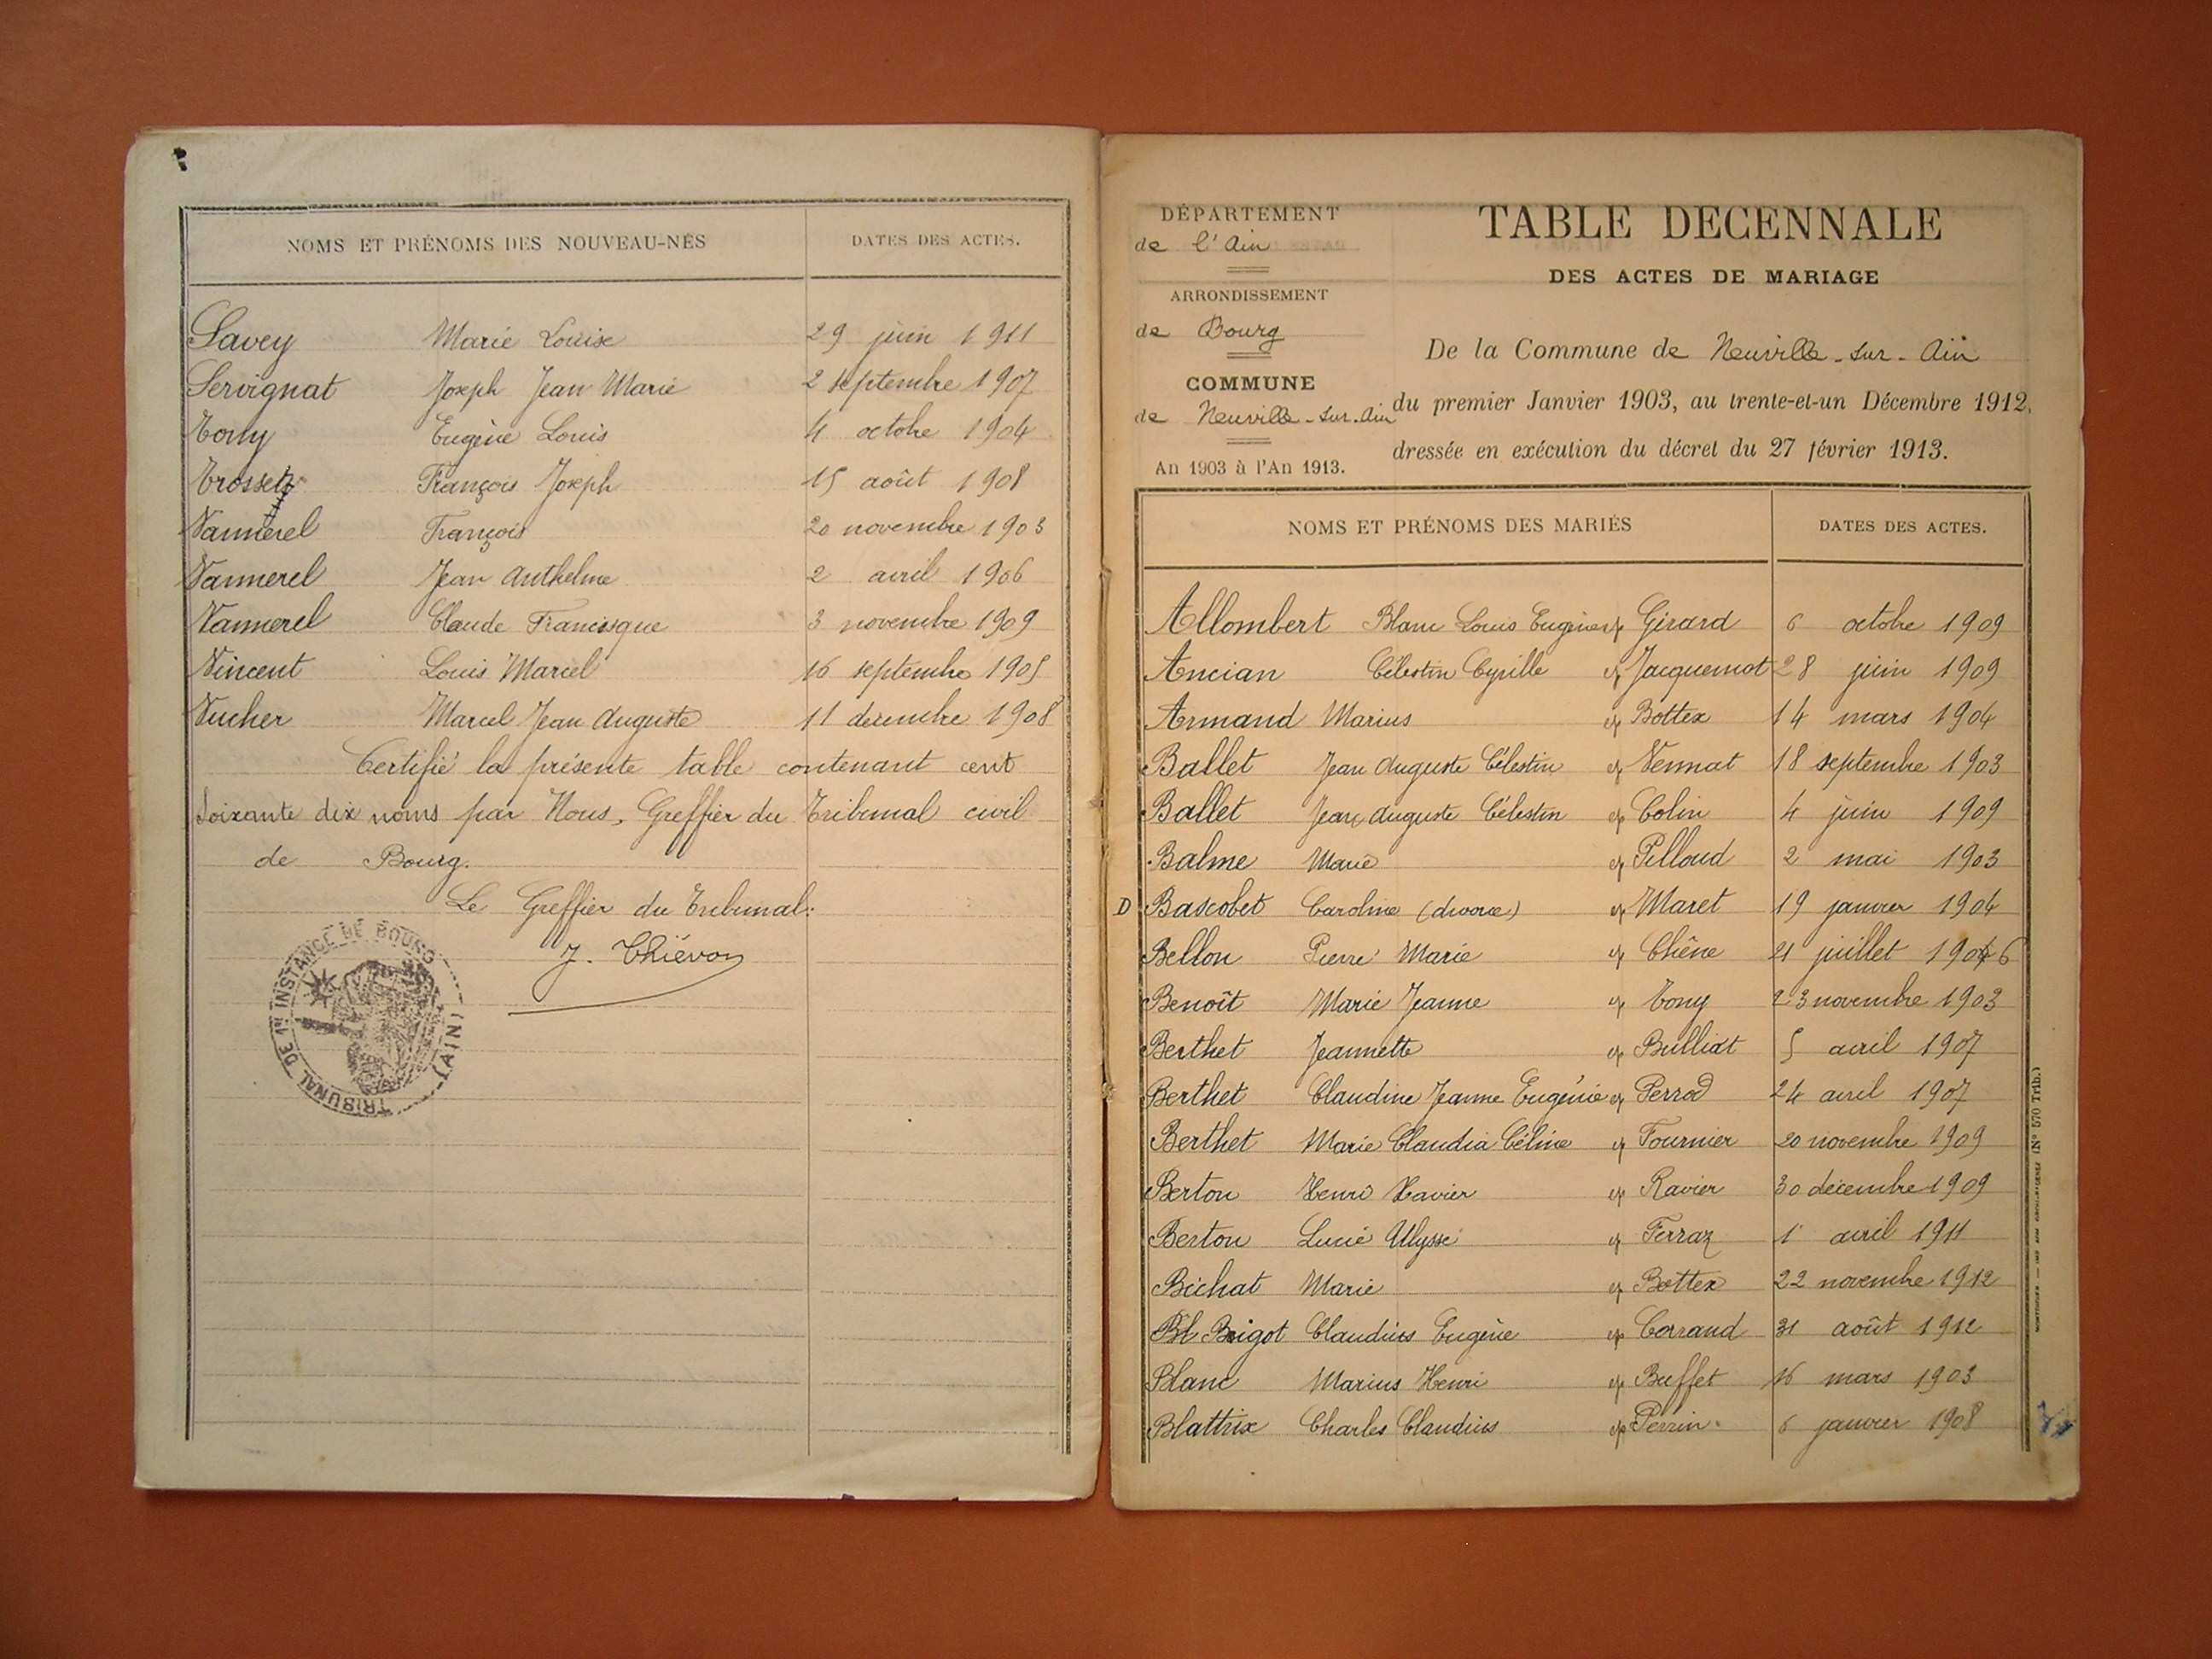 NOMS ET PRÉNOMS DES NOUVEAU-NÉS DATES DES ACTES.
Savey Marie Louise 29 juin 1911
Servignat Joseph Jean Marie 2 septembre 1907
Tony Eugène Louis 4 octobre 1904
Trosset François Joseph 15 août 1908
Vannerel François 20 novembre 1903
Vannerel Jean Anthelme 2 avril 1906
Vannerel Claude Francisque 3 novembre 1909
Vincent Louis Marcel 16 septembre 1905
Vucher Marcel Jean Auguste 11 décembre 1908
Certifié la présente table contenant cent
soixante dix noms par Nous, Greffier du Tribunal civil
de Bourg.
Le Greffier du Tribunal:
J. Thiévon
TRIBUNAL DE 1re INSTANCE DE BOURG (AIN)
DÉPARTEMENT
de l'Ain
ARRONDISSEMENT
de Bourg
COMMUNE
de Neuville-sur-Ain
An 1903 à l'An 1913.
TABLE DECENNALE
DES ACTES DE MARIAGE
De la Commune de Neuville-sur-Ain
du premier Janvier 1903, au trente-et-un Décembre 1912,
dressée en exécution du décret du 27 février 1913.
NOMS ET PRÉNOMS DES MARIÉS DATES DES ACTES.
Allombert Blanc Louis Eugène ep Girard 6 octobre 1909
Ancian Célestin Cyrille ep Jacquemot 28 juin 1909
Armand Marius ep Bottex 14 mars 1904
Ballet Jean Auguste Célestin ep Vennat 18 septembre 1903
Ballet Jean Auguste Célestin ep Colin 4 juin 1909
Balme Marie ep Pelloud 2 mai 1903
D Bascobet Caroline (divorce) ep Maret 19 janvier 1904
Bellon Pierre Marie ep Chêne 21 juillet 1906
Benoît Marie Jeanne ep Tony 23 novembre 1903
Berthet Jeannette ep Bulliat 5 avril 1907
Berthet Claudine Jeanne Eugénie ep Perrod 24 avril 1907
Berthet Marie Claudia Céline ep Fournier 20 novembre 1909
Berton Henri Xavier ep Ravier 30 décembre 1909
Berton Lucié Ulysse ep Ferraz 1 avril 1911
Béchat Marie ep Bottex 22 novembre 1912
Bl Brigot Claudius Eugène ep Corrand 31 août 1912
Blanc Marius Henri ep Buffet 16 mars 1903
Blattrix Charles Claudius ep Perrin 6 janvier 1908
(N° 570 Trib.)